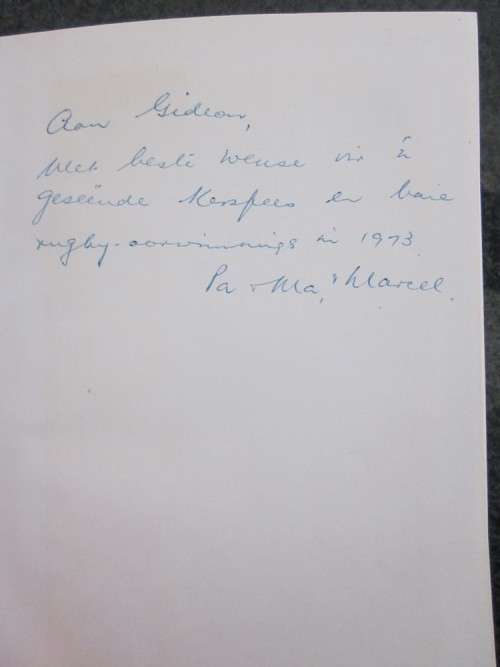 Aan Gideon,
Met beste wense vir 'n
geseënde Kersfees en baie
rugby-oorwinnings in 1973
Pa & Ma, & Marcel.